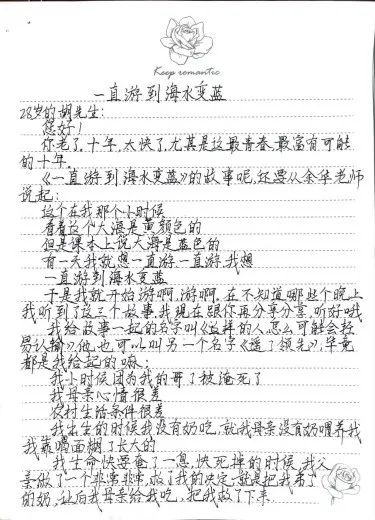 Keep romantic
一直游到海水变蓝
28岁的胡先生:
您好!
你老了,十年,太快了,尤其是这最青春、最富有可能
的十年。
《一直游到海水变蓝》的故事呢,还要从余华老师
说起:
这个在我那个小时候
看着这个大海是黄颜色的
但是课本上说大海是蓝色的
有一天我就想一直游一直游,我想
一直游到海水变蓝
于是我就开始游啊,游啊。在不知道哪些个晚上
我听到了这三个故事,我现在跟你再分享分享,听好哦
我给故事一起的名字叫《这样的人怎么可能会轻
易认输》他也可以叫另一个名字《遥了领先》,毕竟
都是我给起的嘛:
我小时候因为我的哥了被淹死了
我母亲心情很差
农村生活条件很差
我出生的时候我没有奶吃,就我母亲没有奶喂养我
我靠喝面糊了长大的
我生命快要奄了一息,快死掉的时候,我父
亲做了一个非常非常,救了我的决定,就是把我弟了
的奶,让向我母亲给我吃,把我救了下来